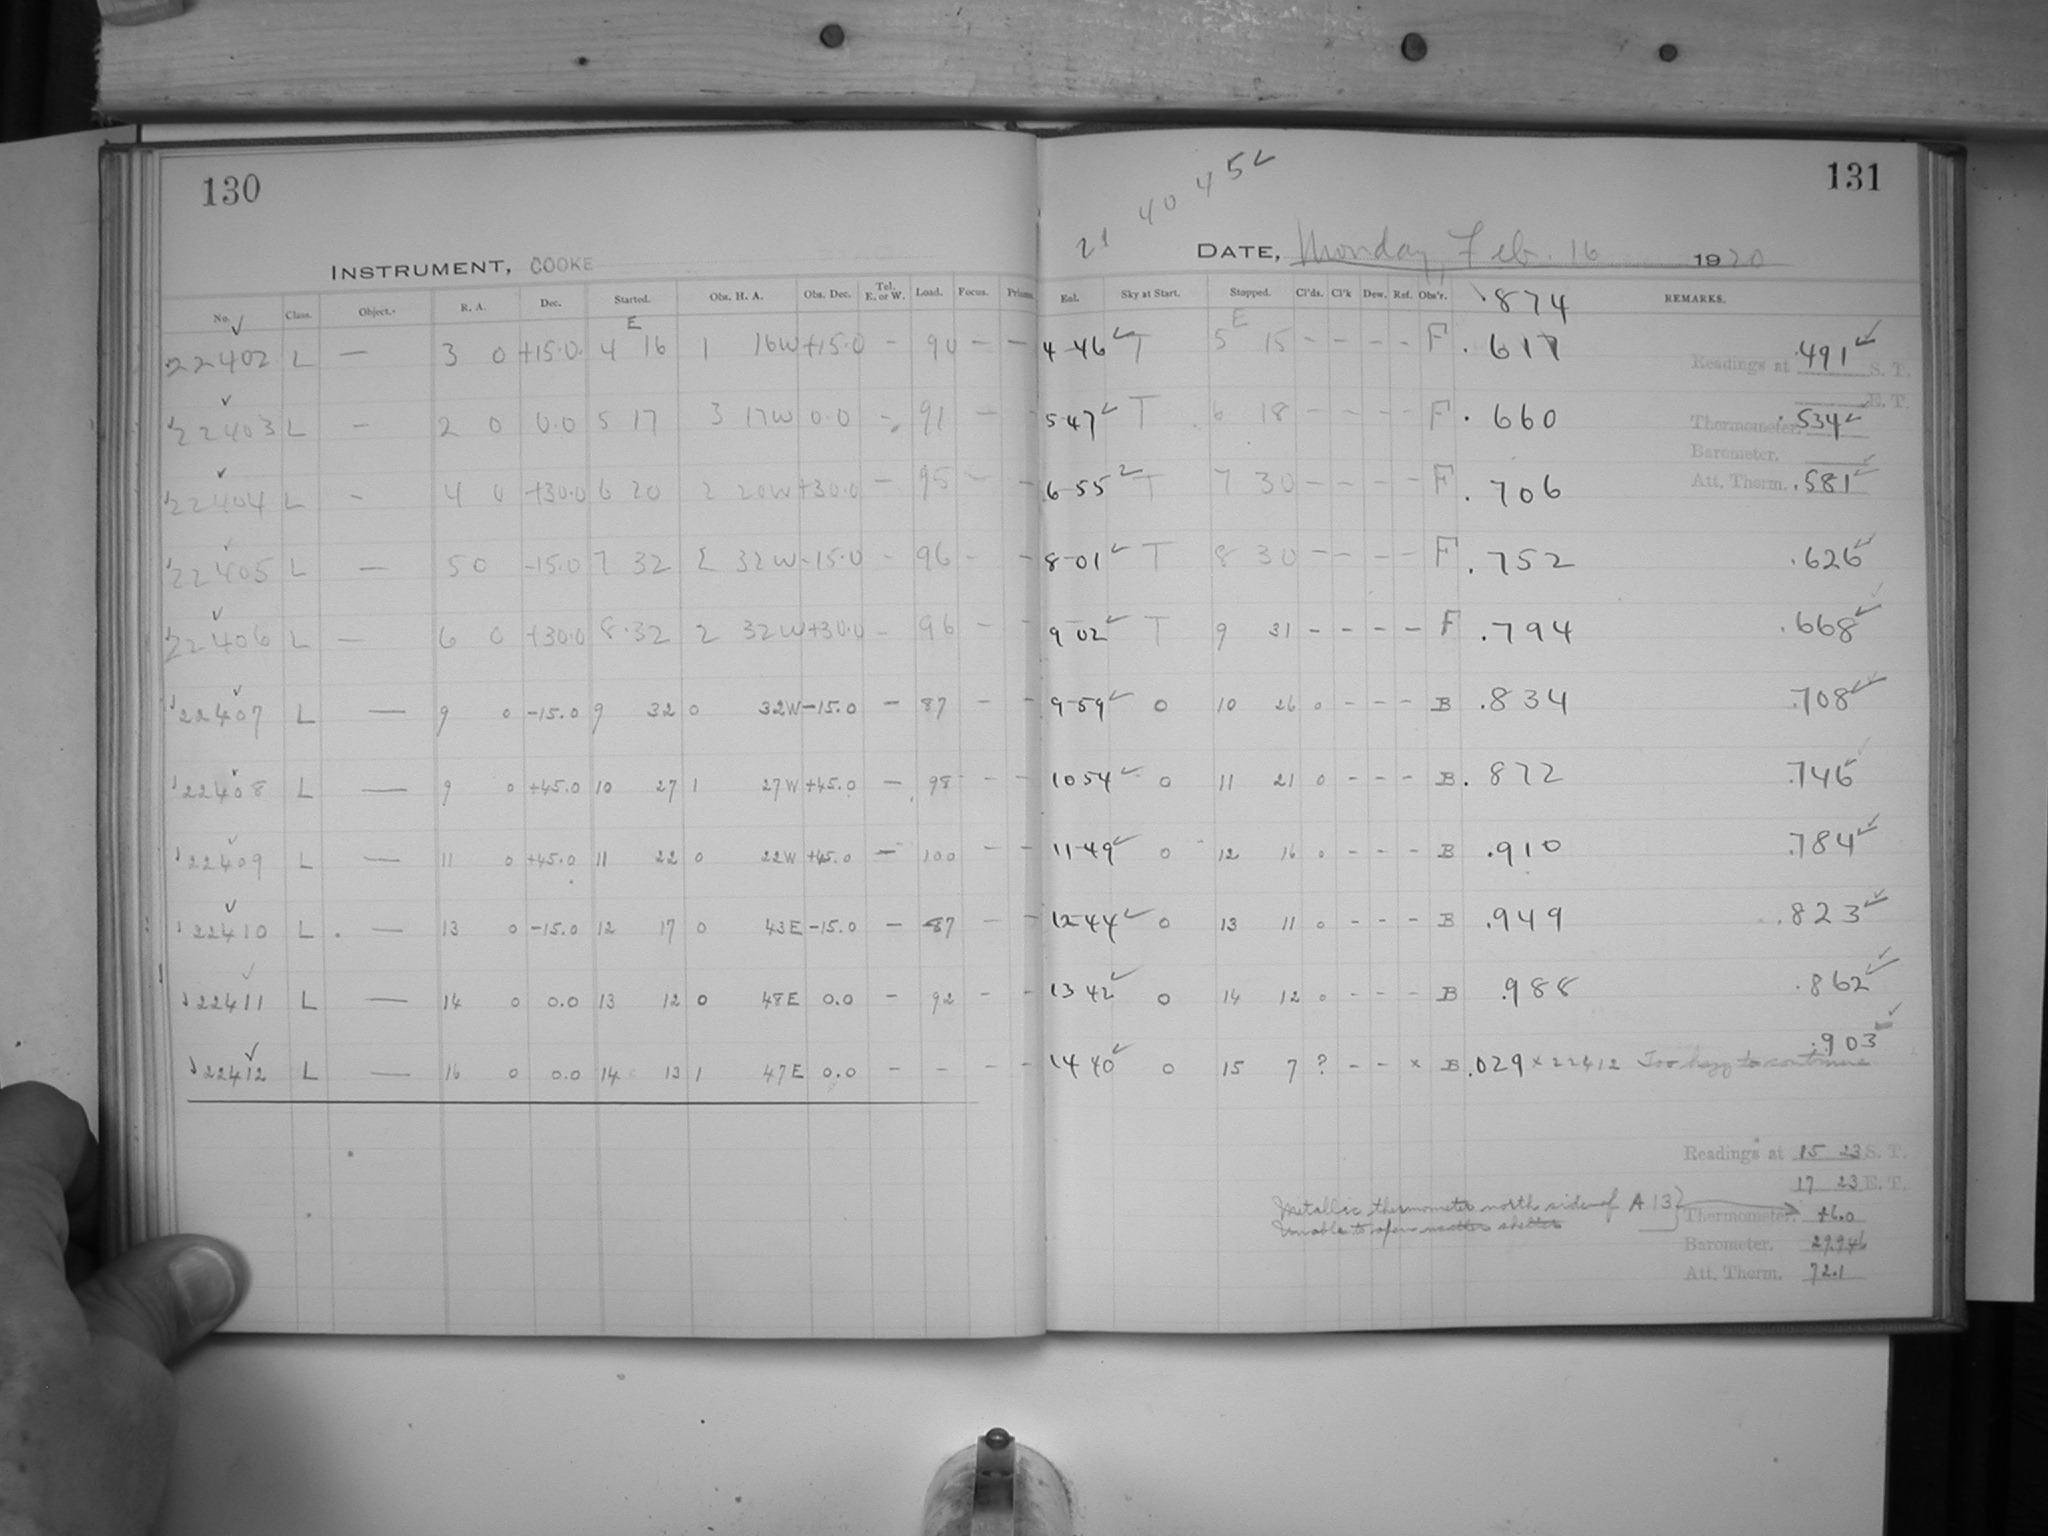 130
INSTRUMENT, COOKE
No. Class. Object. R. A. Dec. Started. Obs. H. A. Obs. Dec. Tel. E. or W. Load. Focus. Prisms.
E
22402 L — 3 0 +15.0 4 16 1 16W +15.0 - 90 - -
22403 L — 2 0 0.0 5 17 3 17W 0.0 - 91 - -
22404 L - 4 0 +30.0 6 20 2 20W +30.0 - 95 - -
22405 L — 5 0 -15.0 7 32 2 32W -15.0 - 96 - -
22406 L — 6 0 +30.0 8.32 2 32W +30.0 - 96 - -
22407 L — 9 0 -15.0 9 32 0 32W -15.0 - 87 - -
22408 L — 9 0 +45.0 10 27 1 27W +45.0 - 98 - -
22409 L — 11 0 +45.0 11 22 0 22W +45.0 - 100 - -
22410 L — 13 0 -15.0 12 17 0 43E -15.0 - 87 - -
22411 L — 14 0 0.0 13 12 0 48E 0.0 - 92 - -
22412 L — 16 0 0.0 14 13 1 47E 0.0 - - - -
131
21 40 45 ✓
DATE, Monday, Feb. 16 1920
Sky at Start. Stopped. Cl'ds. Cl'k Dew. Ref. Obs'r. .874 REMARKS.
E
4-46 ✓ T 5 15 - - - - F .617 .491 ✓
Readings at S. T.
E. T.
5-47 ✓ T 6 18 - - - - F .660 .534 ✓
Thermometer.
Barometer.
6-55 ✓ T 7 30 - - - - F .706 .581 ✓
Att. Therm.
8-01 ✓ T 8 30 - - - - F .752 .626 ✓
9 02 ✓ T 9 31 - - - - F .794 .668 ✓
9-59 ✓ 0 10 26 0 - - - B .834 .708 ✓
10 54 ✓ 0 11 21 0 - - - B .872 .746 ✓
11-49 ✓ 0 12 16 0 - - - B .910 .784 ✓
12-44 ✓ 0 13 11 0 - - - B .949 .823 ✓
13 42 ✓ 0 14 12 0 - - - B .988 .862 ✓
.903 ✓
14 40 ✓ 0 15 7 ? - - x B .029 x 22412 Too hazy to continue
Readings at 15 23 S. T.
17 23 E. T.
Metallic thermometer north side of A 13
Unable to open shelter
Thermometer. +6.0
Barometer. 29.946
Att. Therm. 72.1